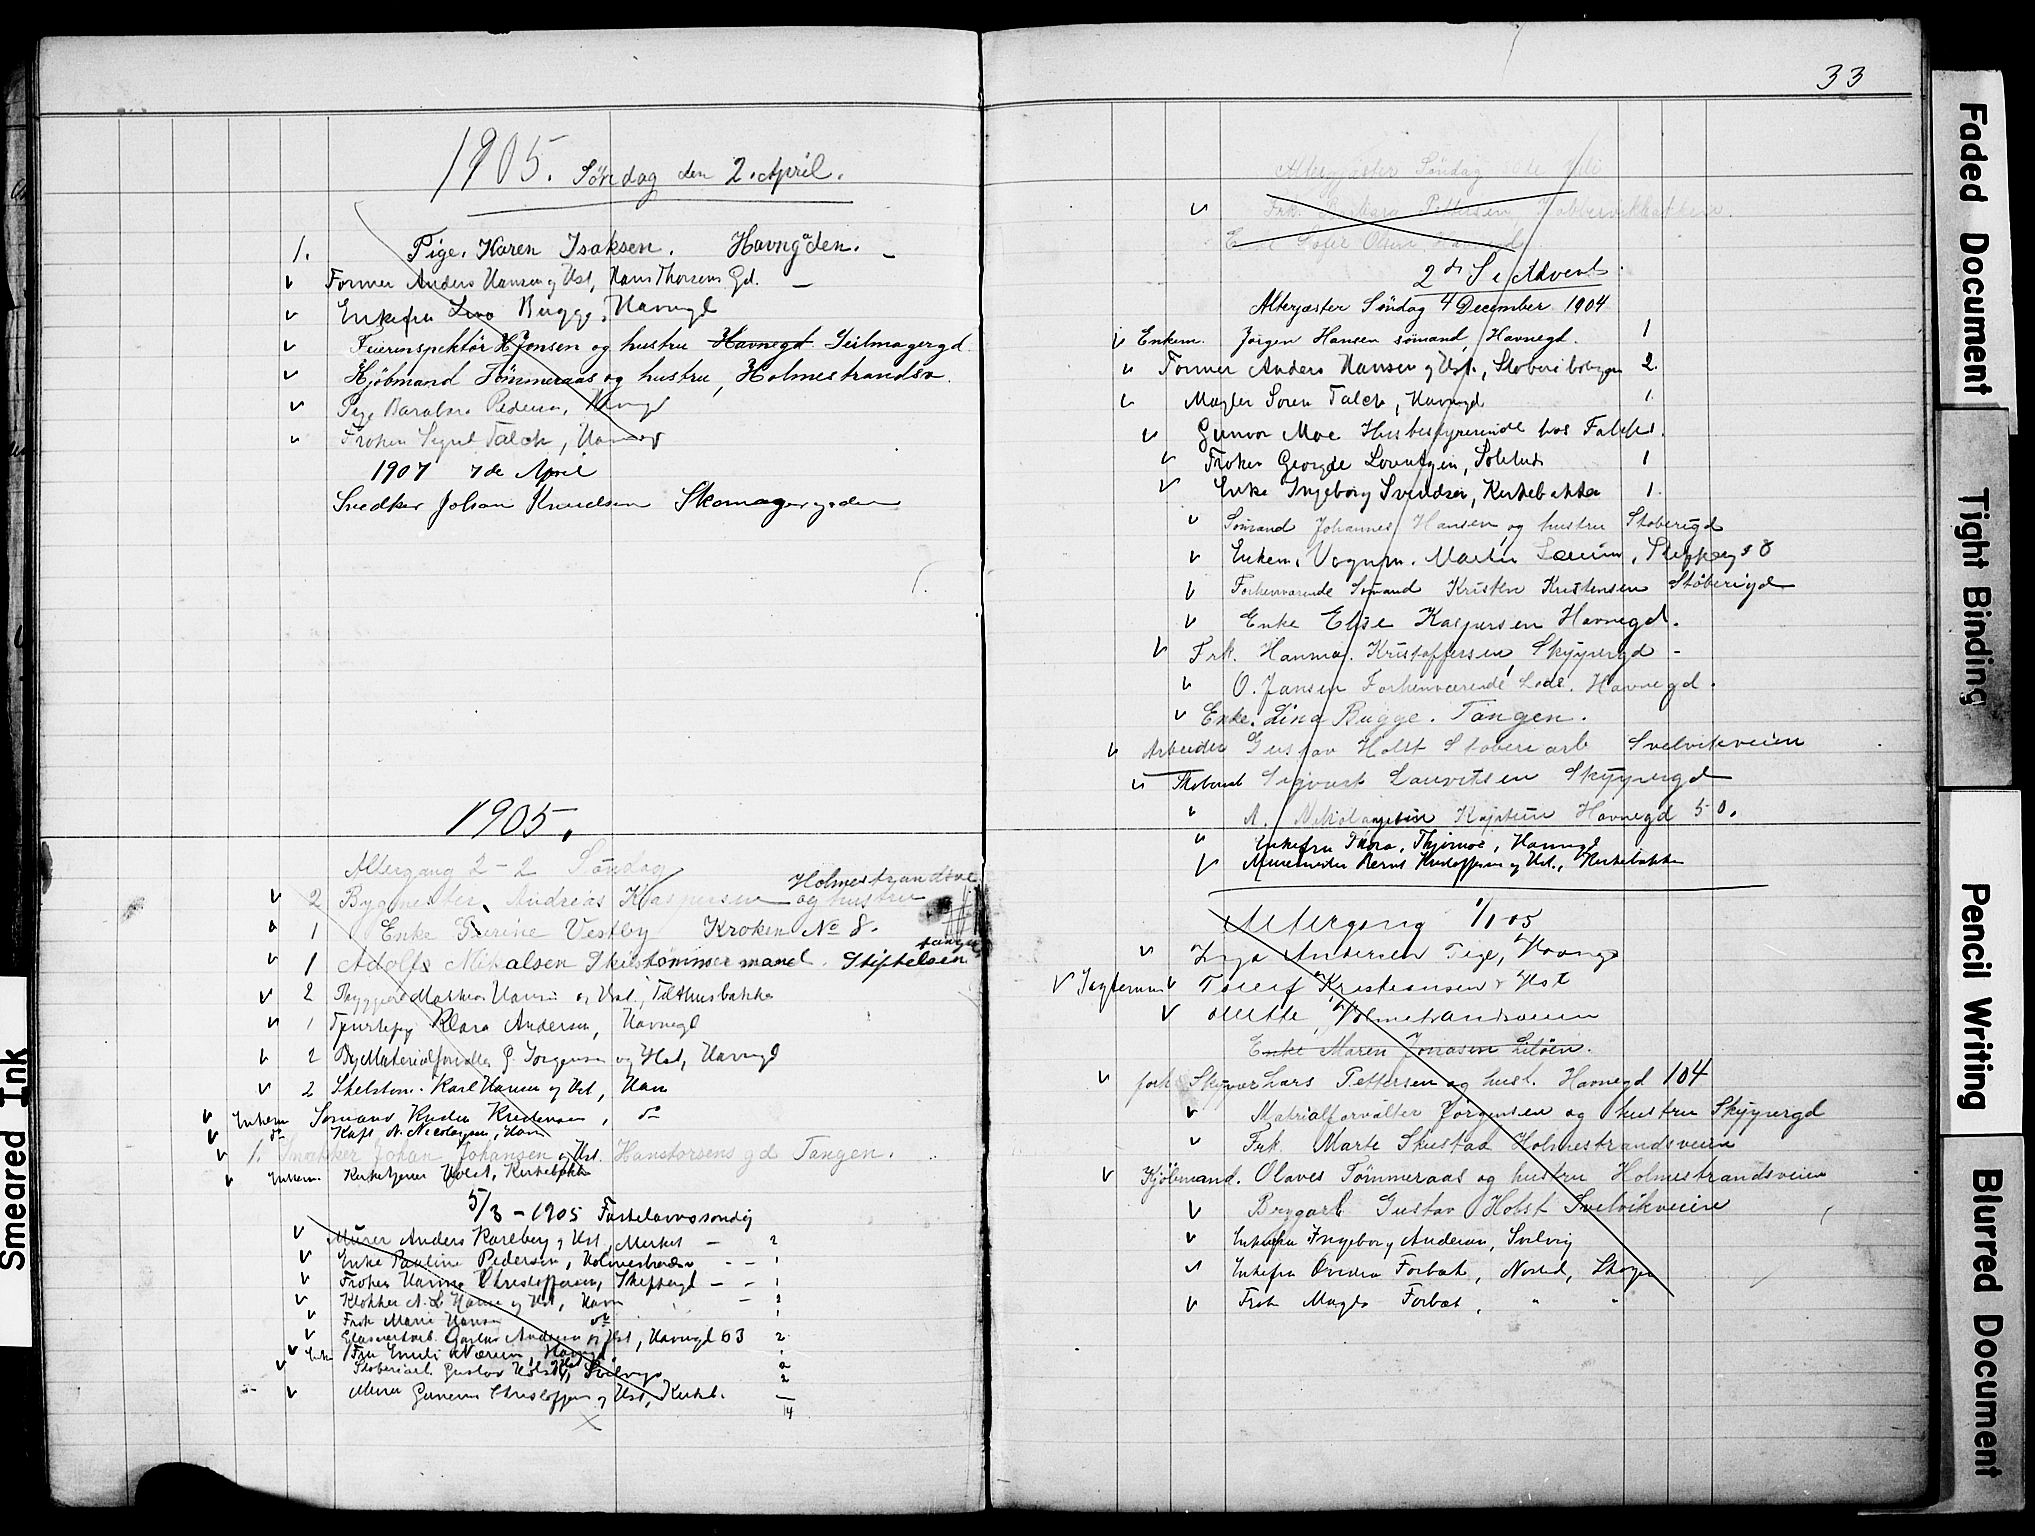 1905. Söndag den 2. April.
1. Pige. Karen Isaksen. Havngaden. -
Former Anders Hansen og Hst, Hans Thorsens Gd. -
Enkefru Lina Bugge, Havnegd
Feierinspektör Jonsen og hustru Havnegd Seilmagergd.
Kjöbmand Tömmeraas og hustru, Holmestrandsv.
Pige Barabra Pedersen, Havngd
Frøken Signe Falck, Havneg
1907 7de April
Snedker Johan Knudsen Skomagergaden
1905.
Altergang 2-2 Söndag
Holmestrandsve
2 Bygmester Andreas Kaspersen og hustru
1 Enke Gurine Vestby Kroken No 8.
Tangen
1 Adolf Mikalsen Skibstömmermand. Stiftelsen
2 Mathias Hansen og Hst, Tolthusbakken
1 Klara Andersen, Havnegd
2 Materialforvalter Jorgensen og Hst, Havngd
2 Karl Hansen og Hst, Havn
Enkem Sømand Kristensen, do
do Kapt N. Nicolaysen, Havn
1. Snekker Johan Johansen og Hst. Hanstorsens gd Tangen.
Enkem. Kirketjener Holst, Kirkebakken
5/3-1905 Fastelavnssondag
Murer Anders Karlberg og Hst, Merket - 2
Enke Pauline Pedersen, Holmestrandsv - - 1
Frøken Hanna Christoffersen, Skippergd - - 1
Klokker A. L. Hansen og Hst, Havn - 2
Frøk Marie Hansen do 1
Gustav Andersen og Hst, Havngd 63 2
Enke Fru Emili Nærum, Havngd 1
Stoberiarb. Gustav Holst, Hst, Svelvigv 2
Murer Christoffersen og Hst, Kirkeb. 2
14
33
Altergjæster Söndag
Frk. Barbra Pettersen, Kobbervikbakken.
Enke Sofie Olsen, Havnegd.
2 d S i Advent
Altergjæster Söndag 4 December 1904
Enkem. Jörgen Hansen sömand, Havnegd. 1
Former Anders Hansen og Hst., Stoberibolygen 2
Mægler Soren Falck, Havnegd 1
Gunvor Moe Husbestyrerinde hos Falck.
Frøken Lorentzen, Solelud 1
Enke Ingeborg Svendsen, Kirkebakken 1.
Sömand Johannes Hansen og hustru Stoberigd
Enkem. Vognm. Martin
Forhenværende Sömand Kristen Kristensen Stöberigd
Enke Elise Kaspersen Havnegd.
Frk. Hanna. Kristoffersen, Skippergd -
O. Jansen Forhenværende Lods. Havnegd.
Enke. Lina Bugge. Tangen.
Arbeider Gustav Holst Stoberiarb Svelvikveien
Sigvart Lauritsen Skippergd
A. Nikolaysen Kaptein Havnegd 50.
Enkefru Thora. Havnegd
Murermester Bernt Kristoffersen og Hst., Kirkebakken
Altergang 1/1 05
Inga Andersen Pige, Havng
Kristiansen & Hst
Holmestrandsveien
Enke Maren Jonasen Liloen.
forh Skipper Lars Pettersen og hust. Havnegd 104
Matrialforvalter Jorgensen og hustru Skippergd
Frk Marte Skustad Holmestrandsveien
Kjöbmand. Olaves Tömmeraas og hustru Holmestrandsveien
Brygarb Gustav Holst Svelvikveien
Enkefru Ingeborg Andersen, Svelvig
Enkefru Ovidia Forbæk, Nosted, Skoger
Frøk Magda Forbæk, " "
Faded Document
Tight Binding
Pencil Writing
Blurred Document
Smeared Ink